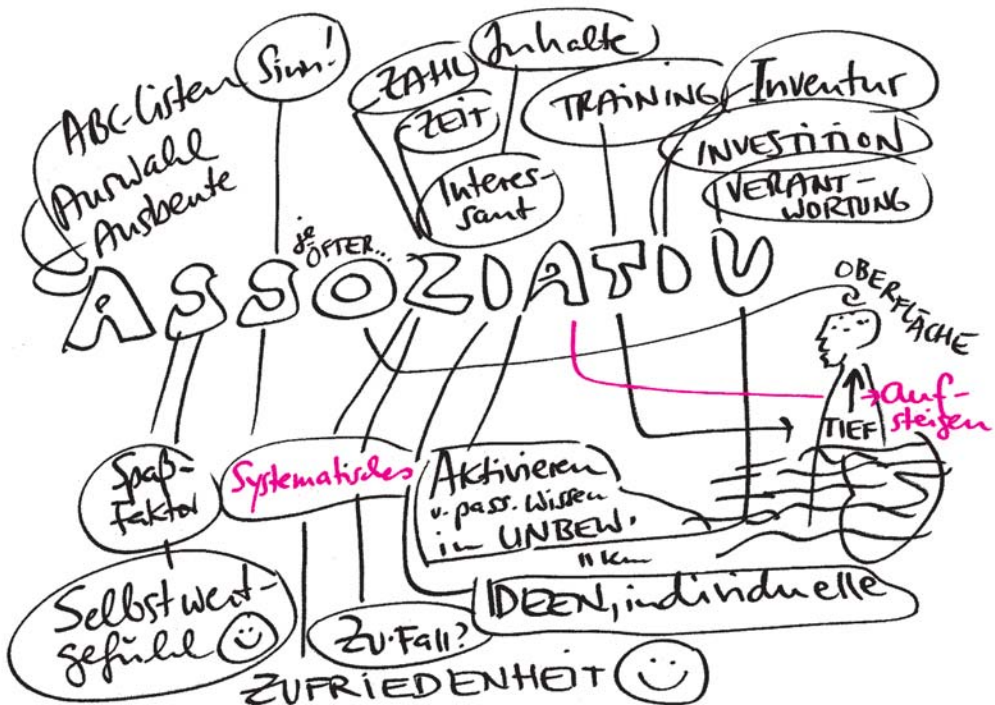 ABC-Listen
Auswahl
Ausbeute
Sinn!
ZAHL
ZEIT
Inhalte
Interes-
sant
TRAINING
Inventur
INVESTITION
VERANT-
WORTUNG
je
ÖFTER...
ASSOZIATIV
OBERFLÄCHE
Auf-
steigen
TIEF
Spaß-
Faktor
Systematisches
Aktivieren
v. pass. Wissen
im UNBEW.
11 km
Selbstwert-
gefühl
Zu-Fall?
IDEEN, individuelle
ZUFRIEDENHEIT